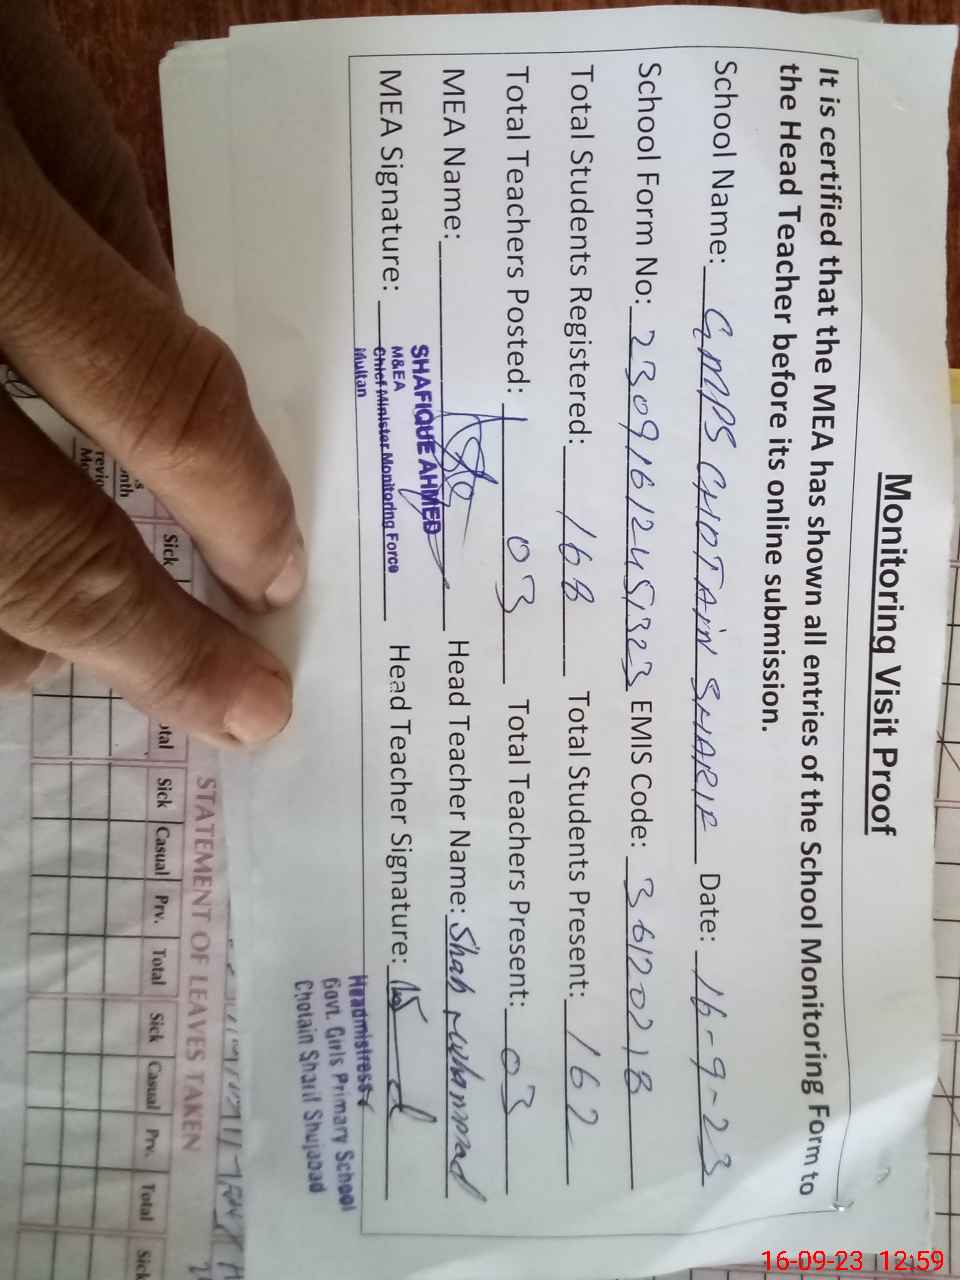 Monitoring Visit Proof
It is certified that the MEA has shown all entries of the School Monitoring Form to
the Head Teacher before its online submission.
School Name: GMPS CHOTAIN SHARIF Date: 16-9-23
School Form No: 2309161245323 EMIS Code: 36120218
Total Students Registered: 168 Total Students Present: 162
Total Teachers Posted: 03 Total Teachers Present: 03
MEA Name: Head Teacher Name: Shah Muhammad
MEA Signature: Head Teacher Signature:
SHAFIQUE AHMED
M&EA
Chief Minister Monitoring Force
Multan
Headmistress
Govt. Girls Primary School
Chotain Sharif Shujabad
STATEMENT OF LEAVES TAKEN
Sick Sick Casual Prv. Total Sick Casual Prv. Total Sick
16-09-23 12:59